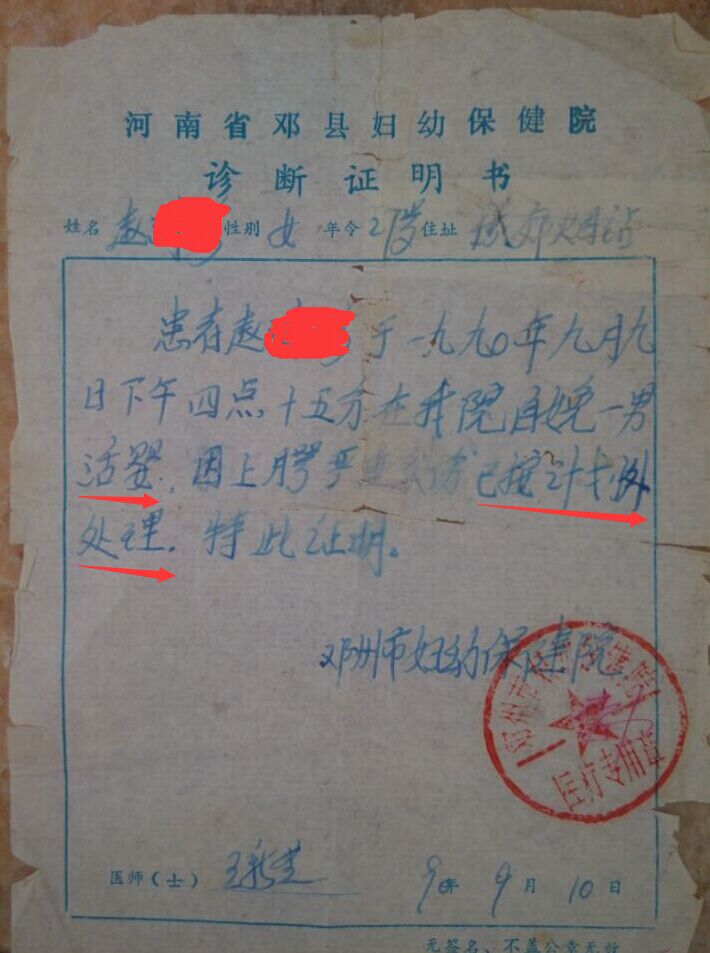 河南省邓县妇幼保健院
诊断证明书
姓名 赵 性别 女 年令 27岁 住址 城郊
患者赵 于一九九〇年九月九
日下午四点十五分在我院自娩一男
活婴,因上腭严重 已按计划外
处理。特此证明。
邓州市妇幼保健院
医疗专用章
医师(士) 王新芝 90年 9月 10日
无签名、不盖公章无效